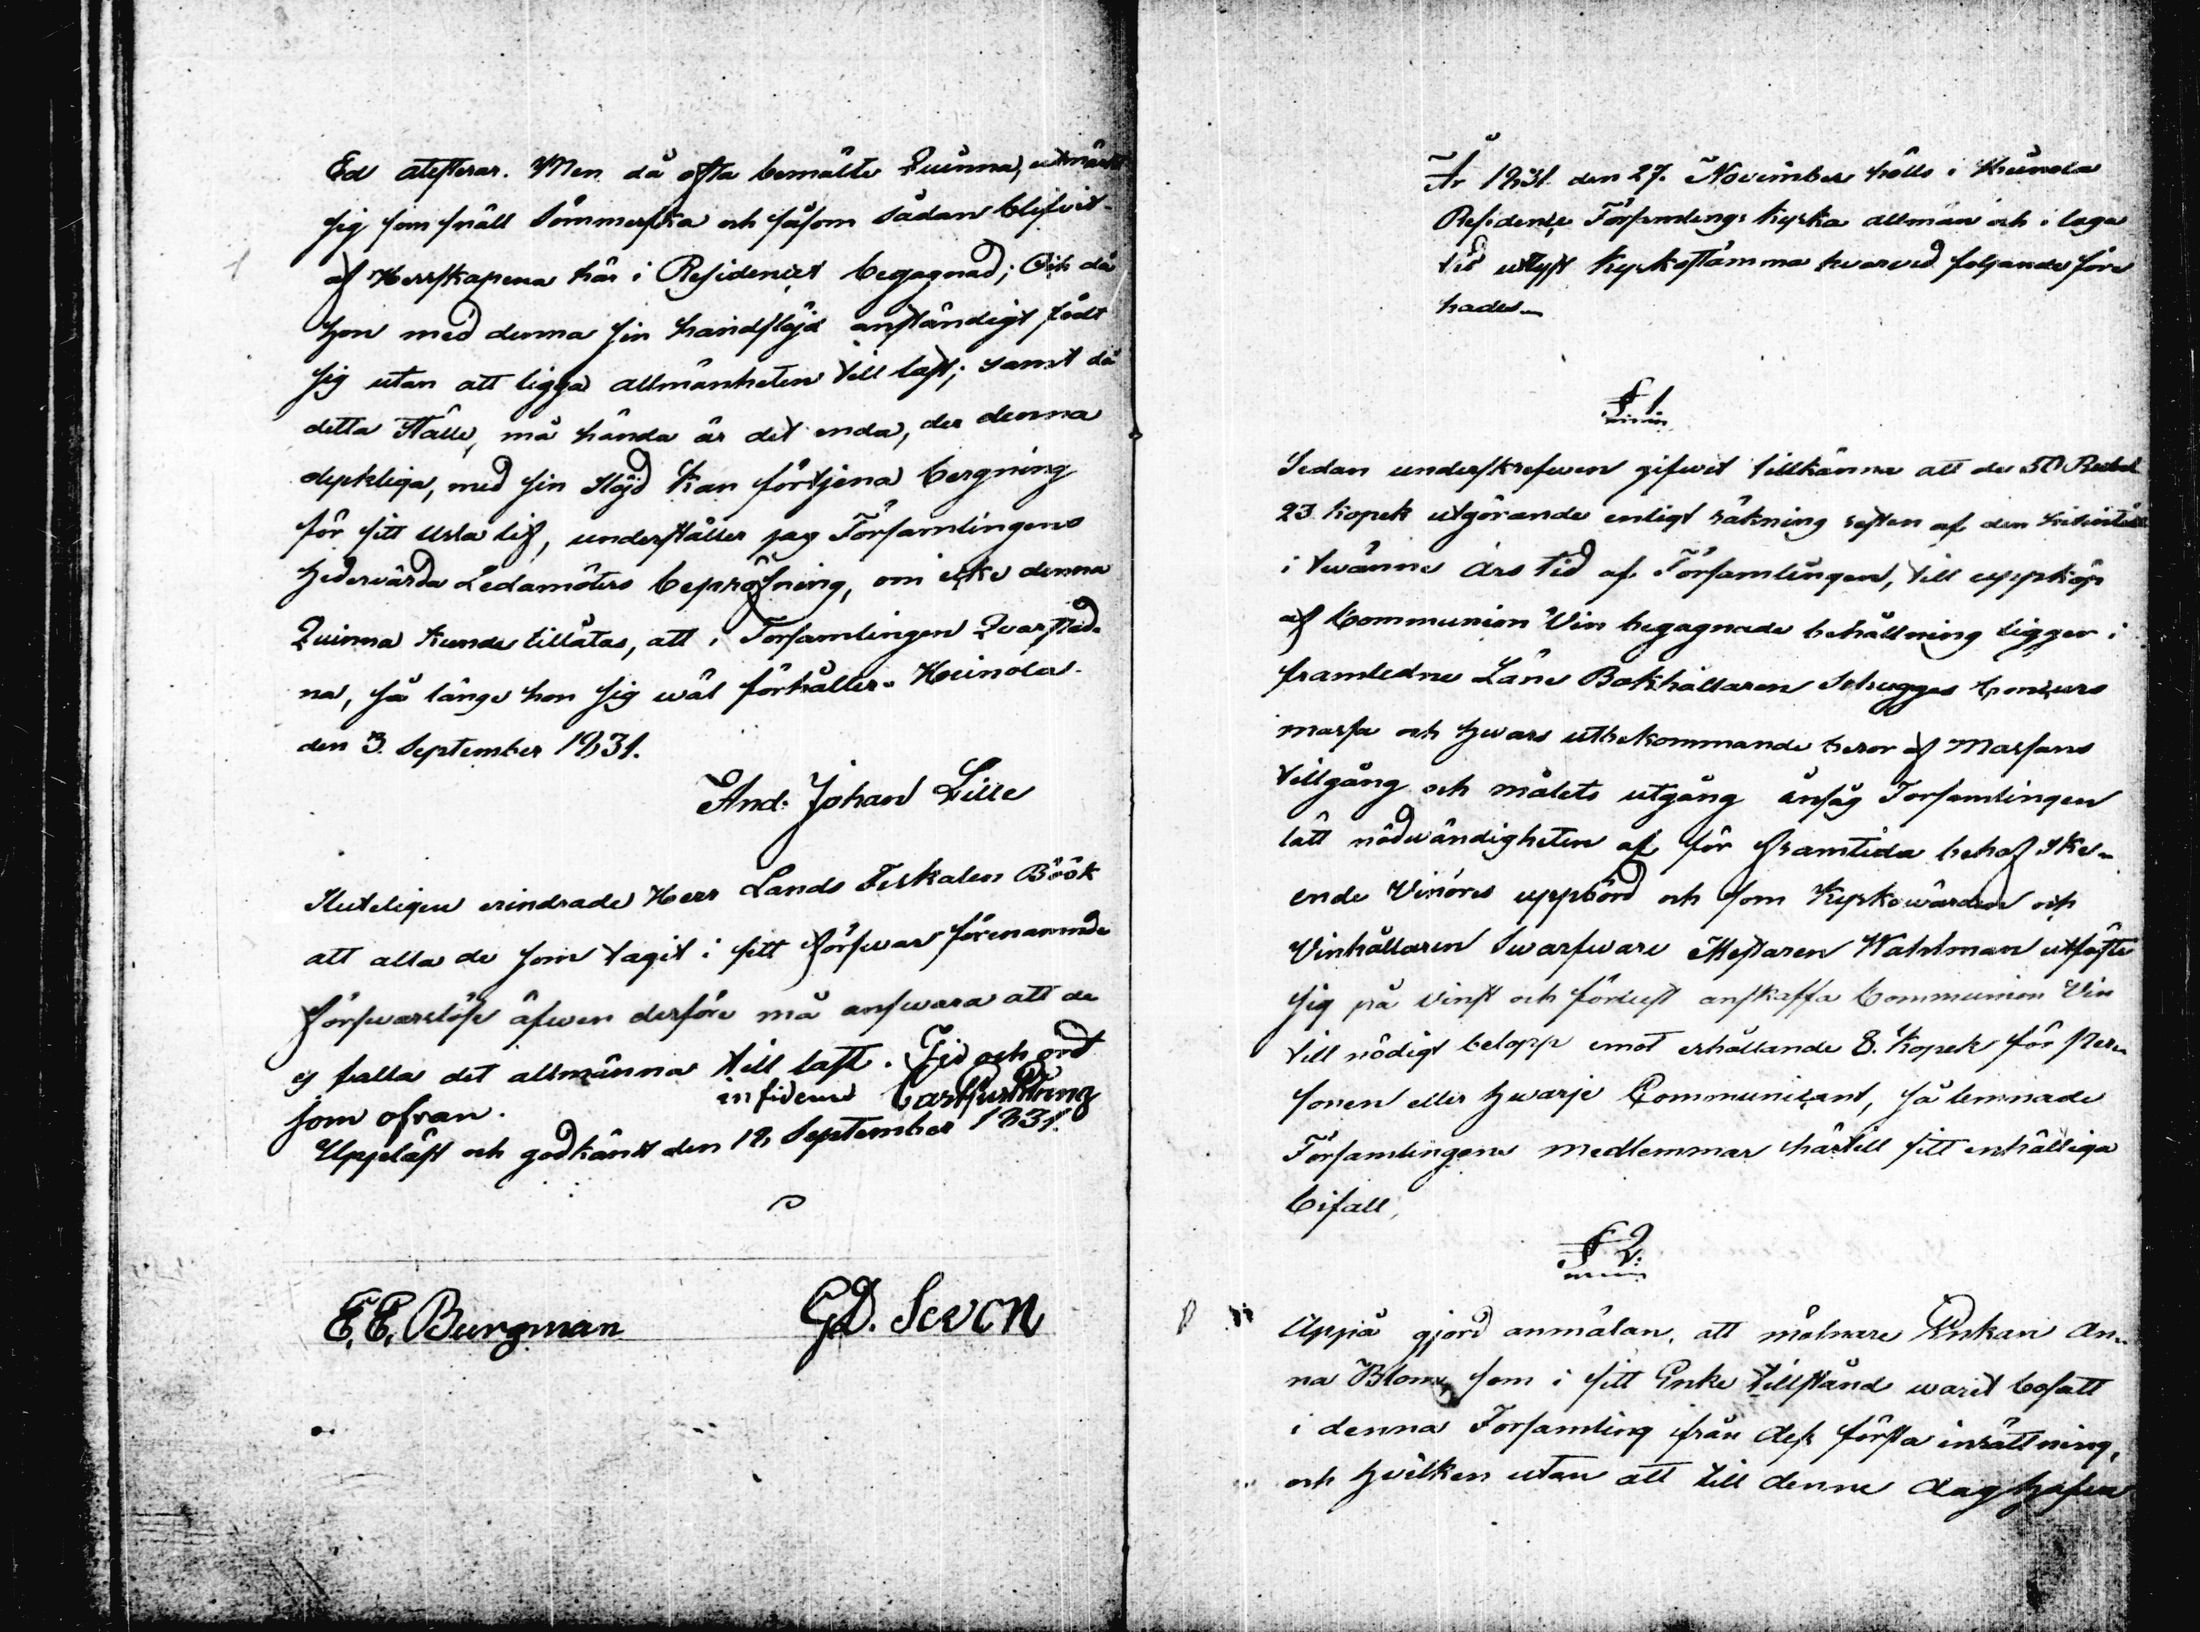 Ed atesterar. Men då ofta bemälte Quinna, utmärkt
sig som snäll Sömmerska och såsom sådan blifvit
af Herrskaperna här i Residencet begagnad; Och då
hon med denna sin handslöjd anständigt födt
sig utan att ligga allmänheten till last; samt då
detta Ställe, må hända är det enda, der denna
olyckliga, med sin slöjd kan förtjena bergning
för sitt usla lif, underställer jag Församlingens
hedervärda Ledamöters bepröfning, om icke denna
Quinna kunde tillåtas, att i Församlingen Quarstad-
na, så länge hon sig wäl förhåller. Heinola
den 3. September 1831.
And. Johan Lille
Sluteligen erindrade Herr Lands Fiskalen Böök
att alla de som tagit i sitt försvar förenämnde
försvarslöse äfwen derföre må answara att de
ej falla det allmänna till last. Tid och ord
som ofvan.
in fidem Carl
Uppläst och godkändt den 18 September 1831.
E. E. Burgman
G D. Sevon
År 1831. den 27. November hölls i Heinola
Residence Församlings Kyrka allmän och i laga
tid utlyst Kyrkostämma hvarvid foljande före
hades
§ 1
Sedan underskrefwen gifwit tillkänna att de 50 Rubel
23 kopek utgörande enligt räkning resten af den
i twänne års tid af Församlingen, till uppköp
af Communion Vin begagnade behållning ligger i
framledne Läns Bokhållaren Schugges Concurs
massa och hwars utbekommande beror af Massans
tillgång och målets utgång ansåg Församlingen
lätt nödwändigheten af för framtida behof ske-
ende Vinöres uppbörd och som Kyrkowärden och
Vinhållaren Swarfware Mestaren Wahlman utfäste
sig på vinst och förlust anskaffa Communion Vin
till nödigt belopp emot erhållande 8. Kopek för Per-
sonen eller hwarje Communicant, så lemnade
Församlingens medlemmar härtill sitt enhälliga
bifall,
§ 2:
Uppå gjord anmälan, att målnare Enkan An-
na Blom, som i sitt Enke tillstånd warit bosatt
i denna Församling ifrån dess första inrättning,
och hwilken utan att till denne dag hafva